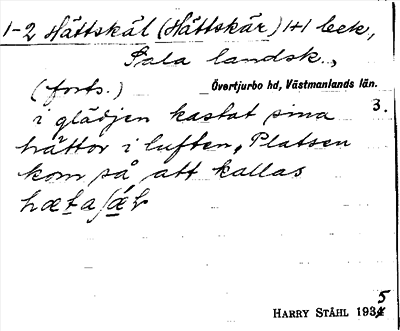 1-2 Hättskäl (Hättskär) 1+1 beck,
Sala landsk.,
(forts.) Övertjurbo hd, Västmanlands län.
3.
i glädjen kastat sina
hättor i luften, Platsen
kom så att kallas
HARRY STÅHL 1935